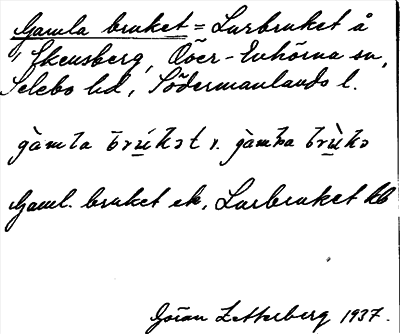 Gamla bruket = Lurbruket å
Ekensberg, Över-Enhörna sn,
Selebo hd, Södermanlands l.
gàmla brú̲kət v. gàmba brù̲kə
Gaml. bruket ek, Lurbruket kb
Göran Zetterberg 1937.